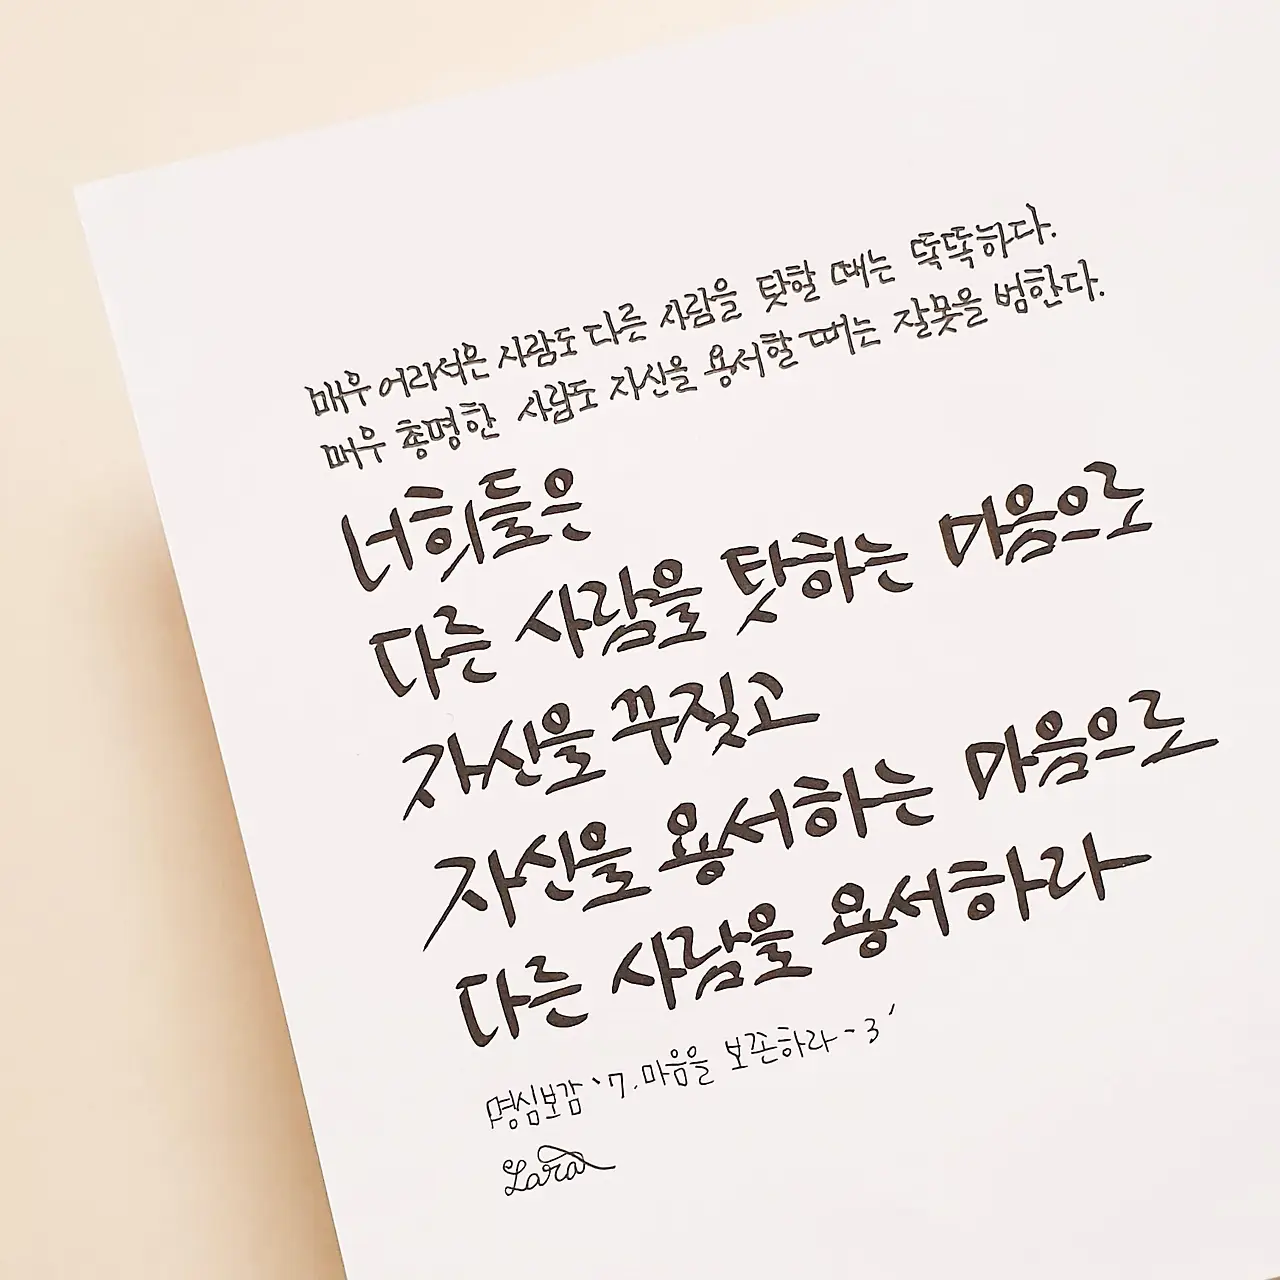 매우 어리석은 사람도 다른 사람을 탓할 때는 똑똑하다.
매우 총명한 사람도 자신을 용서할 때는 잘못을 범한다.
너희들은
다른 사람을 탓하는 마음으로
자신을 꾸짖고
자신을 용서하는 마음으로
다른 사람을 용서하라
명심보감 '7. 마음을 보존하라 - 3'
Lara